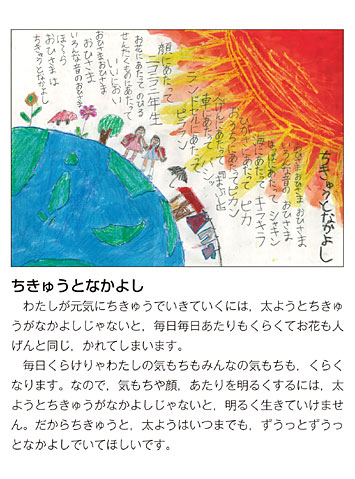 ちきゅうとなかよし
おひさま おひさま おひさま
いろんな音のおひさま
はっぱにあたって シャキン
海にあたって キラキラ
ひがさにあたって ピカ
おうちにあたってピカン
にあたって
車にあたって
ランドセルにあたって
ピカン
顔にあたって
ニコニコ二年生
お花にあたってのびる
せんたくものにあたって
いいにおい
おひさまおひさま
おひさま
いろんな音のおひさま
ほ〜ら
おひさまは
ちきゅうとなかよし
ちきゅうとなかよし
わたしが元気にちきゅうでいきていくには，太ようとちきゅ
うがなかよしじゃないと，毎日毎日あたりもくらくてお花も人
げんと同じ，かれてしまいます。
毎日くらけりゃわたしの気もちもみんなの気もちも，くらく
なります。なので，気もちや顔，あたりを明るくするには，太
ようとちきゅうがなかよしじゃないと，明るく生きていけませ
ん。だからちきゅうと，太ようはいつまでも，ずうっとずうっ
となかよしでいてほしいです。